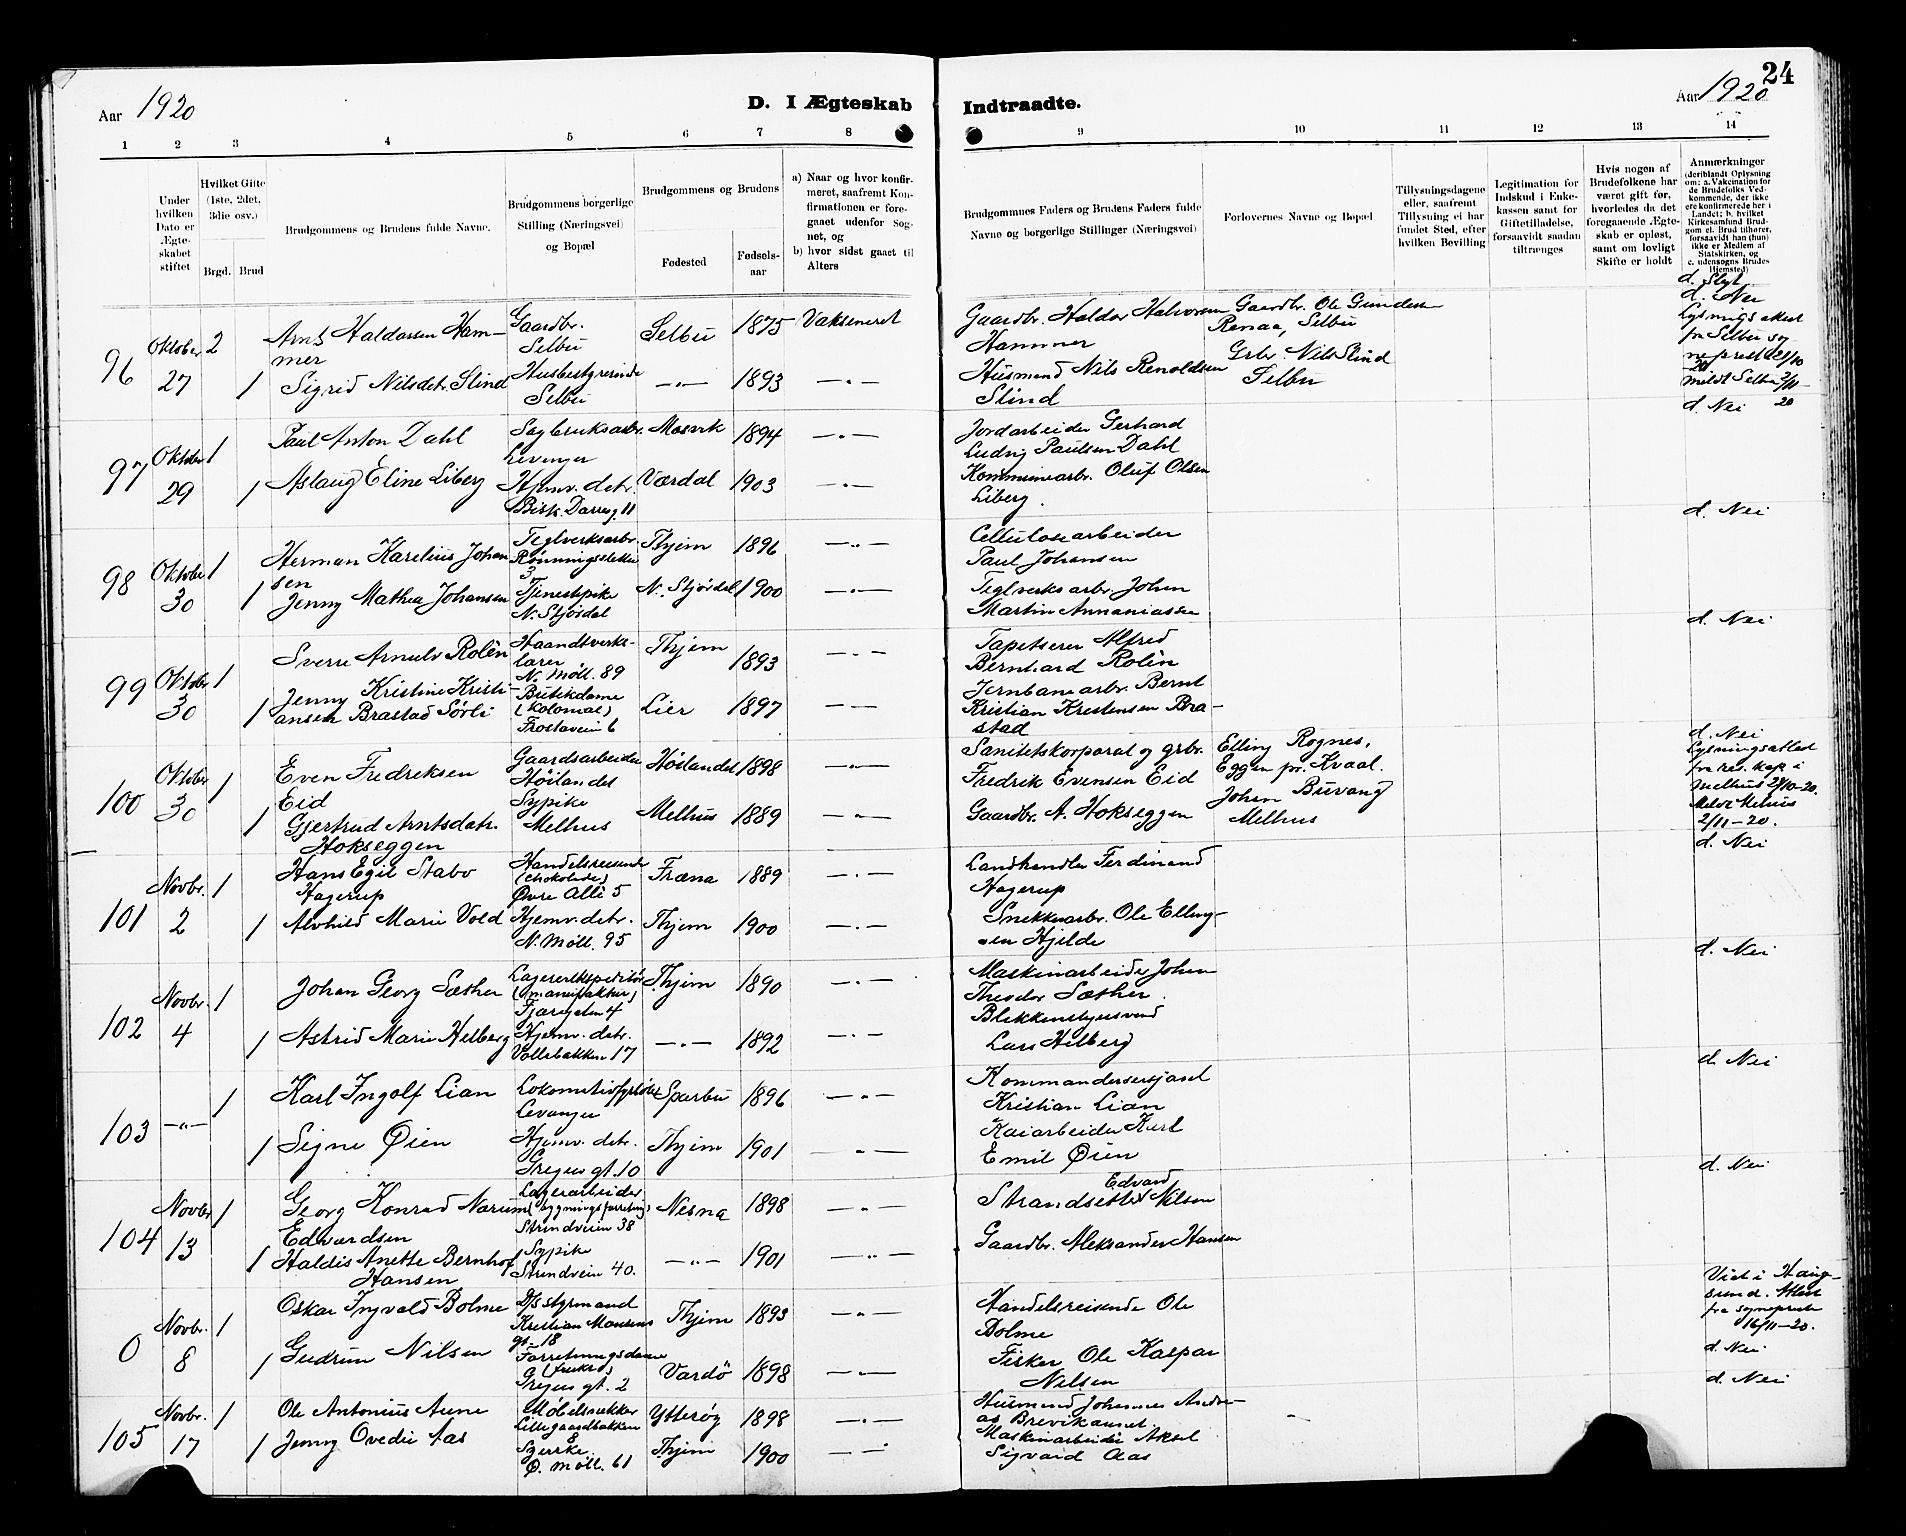 24
Aar 1920
D. I Ægteskab Indtraadte.
Aar 1920
1 2 3 4 5 6 7 8 9 10 11 12 13 14
Under hvilken Dato er Ægteskabet stiftet
Hvilket Gifte (1ste, 2det, 3die osv.)
Brgd. Brud
Brudgommens og Brudens fulde Navne.
Brudgommens borgerlige Stilling (Næringsvei) og Bopæl
Brudgommens og Brudens
Fødested
Fødselsaar
a) Naar og hvor konfirmeret, saafremt Konfirmationen er foregaaet udenfor Sognet, og
b) hvor sidst gaaet til Alters
Brudgommnes Faders og Brudens Faders fulde Navne og borgerlige Stillinger (Næringsvei)
Forlovernes Navne og Bopæl
Tillysningsdagene eller, saafremt Tillysning ei har fundet Sted, efter hvilken Bevilling
Legitimation for Indskud i Enkekassen samt for Giftetilladelse, forsaavidt saadan tiltrænges
Hvis nogen af Brudefolkene har været gift før, hvorledes da det foregaaende Ægteskab er opløst, samt om lovligt Skifte er holdt
Anmærkninger
(deriblandt Oplysning om: a. Vakcination for de Brudefolks Vedkommende, der ikke ere konfirmerede her i Landet; b. hvilket Kirkesamfund Brudgom el. Brud tilhører, forsaavidt han (hun) ikke er Medlem af Statskirken, og c. udensogns Brudes Hjemsted)
96
Oktober 27
2
Arnt Haldorsen Hammer
Gaardbr. Selbu
Selbu 1875 Vaksineret
Gaardbr. Haldor Halvorsen Hammer
Gaardbr. Ole Gundesen Renaa, Selbu
1
Sigrid Nilsdtr. Slind
Husbestyrerinde Selbu
— " — 1893 — " —
Husmand Nils Renoldsen Slind
Grbr. Nils Slind Selbu
d. Nei
Lysningsattest
fra Selbu sog
neprest 21/10
20
meldt Selbu 2/11–
20
97
Oktober 29
1
Paul Anton Dahl
Sagbruksarb. Levanger
Mosvik 1894 — " —
Jordarbeider Gerhard Ludvig Paulsen Dahl
1
Aslaug Eline Liberg
Hjemv. datr. Bisk. Darresg. 11
Værdal 1903 — " —
Kommunearbr. Oluf Olsen Liberg.
d. Nei
98
Oktober 30
1
Herman Karelius Johansen
Teglverksarbr. Rønningsletten 3
Thjem 1896 — " —
Cellulosearbeider Paul Johansen
1
Jenny Mathea Johansen
Tjenestpike N. Stjørdal
N. Stjørdal 1900 — " —
Teglverksarbr. John Martin Annaniassen
d. Nei
99
Oktober 30
1
Sverre Arnulv Rolèn
Haandtverkslærer N. Møll. 89
Thjem 1893 — " —
Tapetserer Alfred Bernhard Rolèn
1
Jenny Kristine Kristiansen Brastad Sørli
Butikdame (kolonial) Frostavein 6
Lier 1897 — " —
Jernbanearbr. Bernt Kristian Kristensen Brastad
d. Nei
100
Oktober 30
1
Even Fredriksen Eid
Gaardsarbeider Høilandet
Høilandet 1898 — " —
Sanitetskorporal og grbr. Fredrik Evensen Eid
Elling Rognes, Eggen pr. Kvaal.
1
Gjertrud Arntsdatr. Hokseggen
Sypike Melhus
Melhus 1889 — " —
Gaardbr. A. Hokseggen
Johan Buvang Melhus
d. Nei
Lysningsattest
fra res. kap i
Melhus 28/10–20.
Meldt Melhus
2/11–20.
101
Novbr. 2
1
Hans Egil Stabo Hagerup
Handelsreisende (chokolade) Øvre Allè 5
Fræna 1889 — " —
Landhandler Ferdinand Hagerup
1
Alvhild Marie Vold
Hjemv. datr. N. Møll. 95
Thjem 1900 — " —
Snekkerarbr. Ole Ellingsen Hjelde
d. Nei
102
Novbr. 4
1
Johan Georg Sæther
Lagerekspeditør (manufaktur) Fjæregaten 4
Thjem 1890 — " —
Maskinarbeider Johan Theodor Sæther.
1
Astrid Marie Helberg
Hjemv. datr. Vollabakken 17
— " — 1892 — " —
Blikkenslagersvend Lars Helberg
d. Nei
103
— " —
1
Karl Ingolf Lian
Lokomotivfyrbøter Levanger
Sparbu 1896 — " —
Kommandersersjant Kristian Lian
1
Signe Øien
Hjemv. datr. Gregus gt. 10
Thjem 1901 — " —
Kaiarbeider Karl Emil Øien
d. Nei
104
Novbr 13
1
Georg Konrad Narum Edvardsen
Lagerarbeider (bygningsforretning) Strindveien 38
Nesna 1898 — " —
Strandsetter Edvard Nilsen
1
Haldis Anette Bernhof Hansen
Sypike Strindveien 40.
— " — 1901 — " —
Gaardbr. Aleksander Hansen
d. Nei
0
Novbr. 8
1
Oskar Ingvald Bolme
D/s styrmand Kristian Monsens gt. 18
Thjem 1893 — " —
Handelsreisende Ole Bolme
1
Gudrun Nilsen
Forretningsdame (frukt) Gregus gt. 2
Vardö 1898 — " —
Fisker Ole Kaspar Nilsen
Viet i Haug–
sund. Attest
fra sogneprest
16/11–20.
d. Nei
105
Novbr. 17
1
Ole Antonius Aune
Møbelsnekker Lillegaardsbakken 8
Ytterøy 1898 — " —
Husmand Johannes Andreas Brevikaunet.
1
Jenny Ovedie Aas
Syerske. Ø. Møll. 61
Thjem 1900 — " —
Maskinarbeider Aksel Sigvard Aas
d. Nei